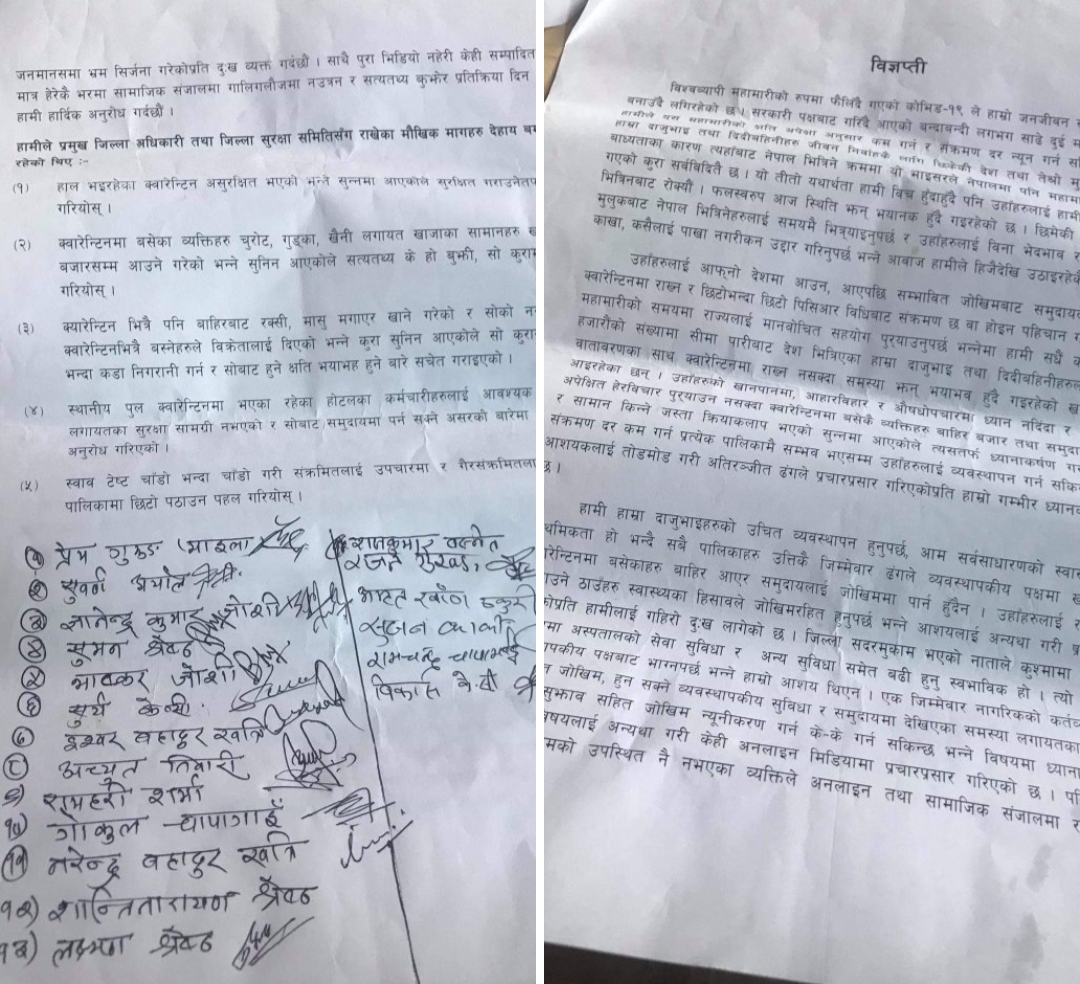 जनमानसमा भ्रम सिर्जना गरेकोप्रति दुःख व्यक्त गर्दछौं । साथै पुरा भिडियो नहेरी केही सम्पादित
मात्र हेरेकै भरमा सामाजिक संजालमा गालिगलौजमा नउत्रन र सत्यतथ्य बुझेर प्रतिक्रिया दिन
हामी हार्दिक अनुरोध गर्दछौं ।
हामीले प्रमुख जिल्ला अधिकारी तथा जिल्ला सुरक्षा समितिसंग राखेका मौखिक मागहरु देहाय
रहेको थिए :-
(१) हाल भइरहेका क्वारेन्टिन असुरक्षित भएको भन्ने सुन्नमा आएकोले सुरक्षित
गरियोस् ।
(२) क्वारेन्टिनमा बसेका व्यक्तिहरु चुरोट, गुड्का, खैनी लगायत खाजाका सामानहरु
बजारसम्म आउने गरेको भन्ने सुनिन आएकोले सत्यतथ्य के हो बुझी, सो
गरियोस् ।
(३) क्यारेन्टिन भित्रै पनि बाहिरबाट रक्सी, मासु मगाएर खाने गरेको र सोको
क्वारेन्टिनभित्रै बस्नेहरुले विक्रेतालाई दिएको भन्ने कुरा सुनिन आएकोले सो
भन्दा कडा निगरानी गर्न र सोबाट हुने क्षति भयाभह हुने बारे सचेत गराइएको ।
(४) स्थानीय पुल क्वारेन्टिनमा भएका रहेका होटलका कर्मचारीहरुलाई आवश्यक
लगायतका सुरक्षा सामग्री नभएको र सोबाट समुदायमा पर्न सक्ने असरको बारेमा
अनुरोध गरिएको ।
(५) स्वाव टेष्ट चाँडो भन्दा चाँडो गरी संक्रमितलाई उपचारमा र गैरसंक्रमितलाई
पालिकामा छिटो पठाउन पहल गरियोस् ।
(१) प्रेम गुरुङ
(२) सुवर्ण
(३) ज्ञानेन्द्र कुमार जोशी
(४) सुमन श्रेष्ठ
(५) भाष्कर जोशी
(६) सुर्य के.सी.
(७) इश्वर बहादुर खत्रि
(८) अच्युत तिवारी
९) रामहरी शर्मा
१०) गोकुल चापागाईं
(११) नरेन्द्र बहादुर खत्रि
१२) शान्तिनारायण श्रेष्ठ
१३) लक्ष्मण श्रेष्ठ
राजकुमार बस्नेत
भारत खवाँण ठकुरी
सुजन कार्की
रामचन्द्र चापागाई
विकास के.सी
विज्ञप्ती
विश्वव्यापी महामारीको रुपमा फैलिँदै गएको कोभिड-१९ ले हाम्रो जनजीवन
बनाउदै लगिरहेको छ । सरकारी पक्षबाट गरिदै आएको बन्दाबन्दी लगभग साढे दुई
हामीले यस महामारीको क्षति अपेक्षा अनुसार कम गर्न र संक्रमण दर न्यून गर्न
हाम्रा दाजुभाइ तथा दिदीबहिनीहरु जीवन निर्वाहकै लागि छिमेकी देश तथा तेश्रो
बाध्यताका कारण त्यहाँबाट नेपाल भित्रिने क्रममा यो भाइसरले नेपालमा पनि
गएको कुरा सर्वविदितै छ । यो तीतो यथार्थता हामी विच हुँदाहुँदै पनि उहाँहरुलाई हामी
भित्रिनबाट रोक्यौं । फलस्वरुप आज स्थिति झन् भयानक हुदै गइरहेको छ । छिमेकी
मुलुकबाट नेपाल भित्रिनेहरुलाई समयमै भित्र्याइनुपर्छ र उहाँहरुलाई विना भेदभाव
काखा, कसैलाई पाखा नगरीकन उद्वार गरिनुपर्छ भन्ने आवाज हामीले हिजैदेखि
उहाँहरुलाई आफ्नो देशमा आउन, आएपछि सम्भावित जोखिमबाट
क्वारेन्टिनमा राख्न र छिटोभन्दा छिटो पिसिआर विधिबाट संक्रमण छ वा होइन पहिचान
महामारीको समयमा राज्यलाई मानवोचित सहयोग पुर्‍याउनुपर्छ भन्नेमा हामी सधै
हजारौंको संख्यामा सीमा पारीबाट देश भित्रिएका हाम्रा दाजुभाइ तथा
वातावरणका साथ क्वारेन्टिनमा राख्न नसक्दा समस्या झन् भयाभव हुदै गइरहेको
आइरहेका छन् । उहाँहरुको खानपानमा, आहारविहार र औषधोपचारमा ध्यान नदिंदा र
अपेक्षित हेरविचार पुर्‍याउन नसक्दा क्वारेन्टिनमा बसेकै व्यक्तिहरु बाहिर बजार तथा
र सामान किन्ने जस्ता क्रियाकलाप भएको सुन्नमा आएकोले त्यसतर्फ ध्यानाकर्षण
संक्रमण दर कम गर्न प्रत्येक पालिकामै सम्भव भएसम्म उहाँहरुलाई व्यवस्थापन गर्न
आशयकलाई तोडमोड गरी अतिरञ्जीत ढंगले प्रचारप्रसार गरिएकोप्रति हाम्रो गम्भीर
छ ।
हामी हाम्रा दाजुभाइहरुको उचित व्यवस्थापन हुनुपर्छ, आम सर्वसाधारणको
हो भन्दै सबै पालिकाहरु उत्तिकै जिम्मेवार ढंगले व्यवस्थापकीय पक्षमा
बसेकाहरु बाहिर आएर समुदायलाई जोखिममा पार्न हुँदैन । उहाँहरुलाई
ठाउँहरु स्वास्थ्यका हिसावले जोखिमरहित हुनुपर्छ भन्ने आशयलाई अन्यथा गरी
हामीलाई गहिरो दुःख लागेको छ । जिल्ला सदरमुकाम भएको नाताले कुश्मामा
अस्पतालको सेवा सुविधा र अन्य सुविधा समेत बढी हुनु स्वभाविक हो । त्यो
पक्षबाट भाग्नपर्छ भन्ने हाम्रो आशय थिएन । एक जिम्मेवार नागरिकको
जोखिम, हुन सक्ने व्यवस्थापकीय सुविधा र समुदायमा देखिएका समस्या लगायतका
सुझाव सहित जोखिम न्यूनीकरण गर्न के-के गर्न सकिन्छ भन्ने विषयमा
अन्यथा गरी केही अनलाइन मिडियामा प्रचारप्रसार गरिएको छ ।
उपस्थित नै नभएका व्यक्तिले अनलाइन तथा सामाजिक संजालमा